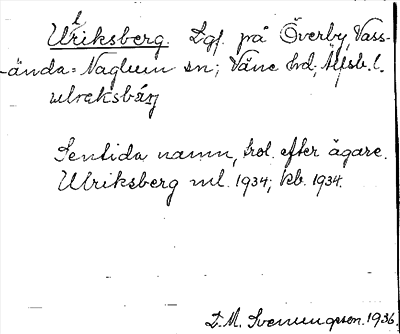 Ulriksberg. Lgf. på Överby, Vass-
ända-Naglum sn; Väne hd; Älfsb. l.
ulraksbärj
Sentida namn, trol. efter ägare.
Ulriksberg ml. 1934; kb. 1934.
D. M. Svenungsson. 1936.